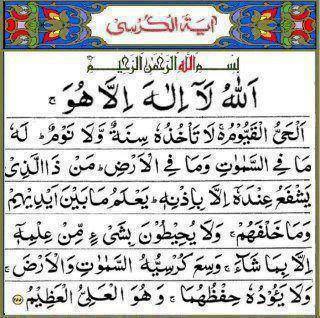 آیة الکرسی
بِسْمِ اللهِ الرَّحْمٰنِ الرَّحِیْمِ
اَللهُ لَآ اِلٰهَ اِلَّا هُوَ ۚ
اَلْحَیُّ الْقَیُّوْمُ ۚ لَا تَاْخُذُهٗ سِنَةٌ وَّلَا نَوْمٌ ؕ لَهٗ
مَا فِی السَّمٰوٰتِ وَمَا فِی الْاَرْضِ ؕ مَنْ ذَا الَّذِیْ
یَشْفَعُ عِنْدَهٗۤ اِلَّا بِاِذْنِهٖ ؕ یَعْلَمُ مَا بَیْنَ اَیْدِیْهِمْ
وَمَا خَلْفَهُمْ ۚ وَلَا یُحِیْطُوْنَ بِشَیْءٍ مِّنْ عِلْمِهٖۤ
اِلَّا بِمَا شَآءَ ۚ وَسِعَ کُرْسِیُّهُ السَّمٰوٰتِ وَالْاَرْضَ ۚ
وَلَا یَـُٔوْدُهٗ حِفْظُهُمَا ۚ وَهُوَ الْعَلِیُّ الْعَظِیْمُ ۲۵۵